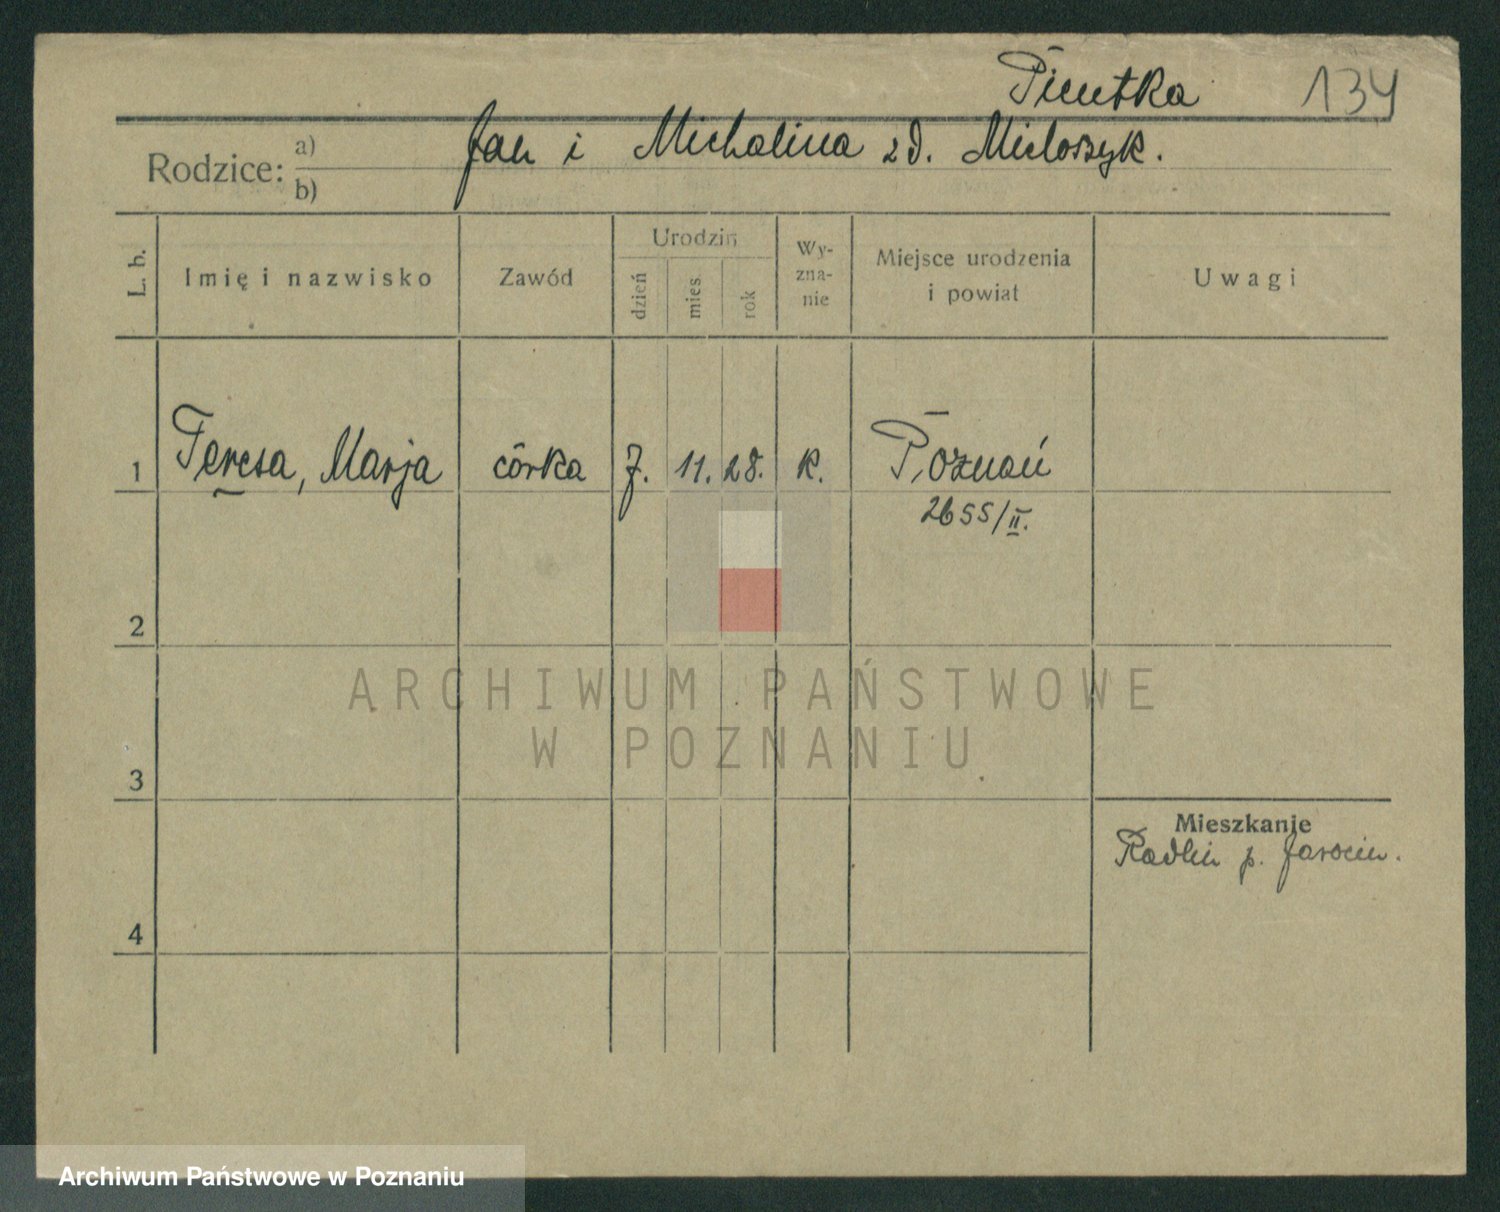 Pieutka 134
Rodzice: a) Jan i Michalina zd. Mieloszyk.
b)
L. b. Imię i nazwisko Zawód Urodzin dzień mies. rok Wyznanie Miejsce urodzenia i powiat Uwagi
1 Teresa, Marja córka 7. 11. 28. k. Poznań
2655/II.
2
3
Mieszkanie
Radlin p. Jarocin.
4
ARCHIWUM PAŃSTWOWE
W POZNANIU
Archiwum Państwowe w Poznaniu